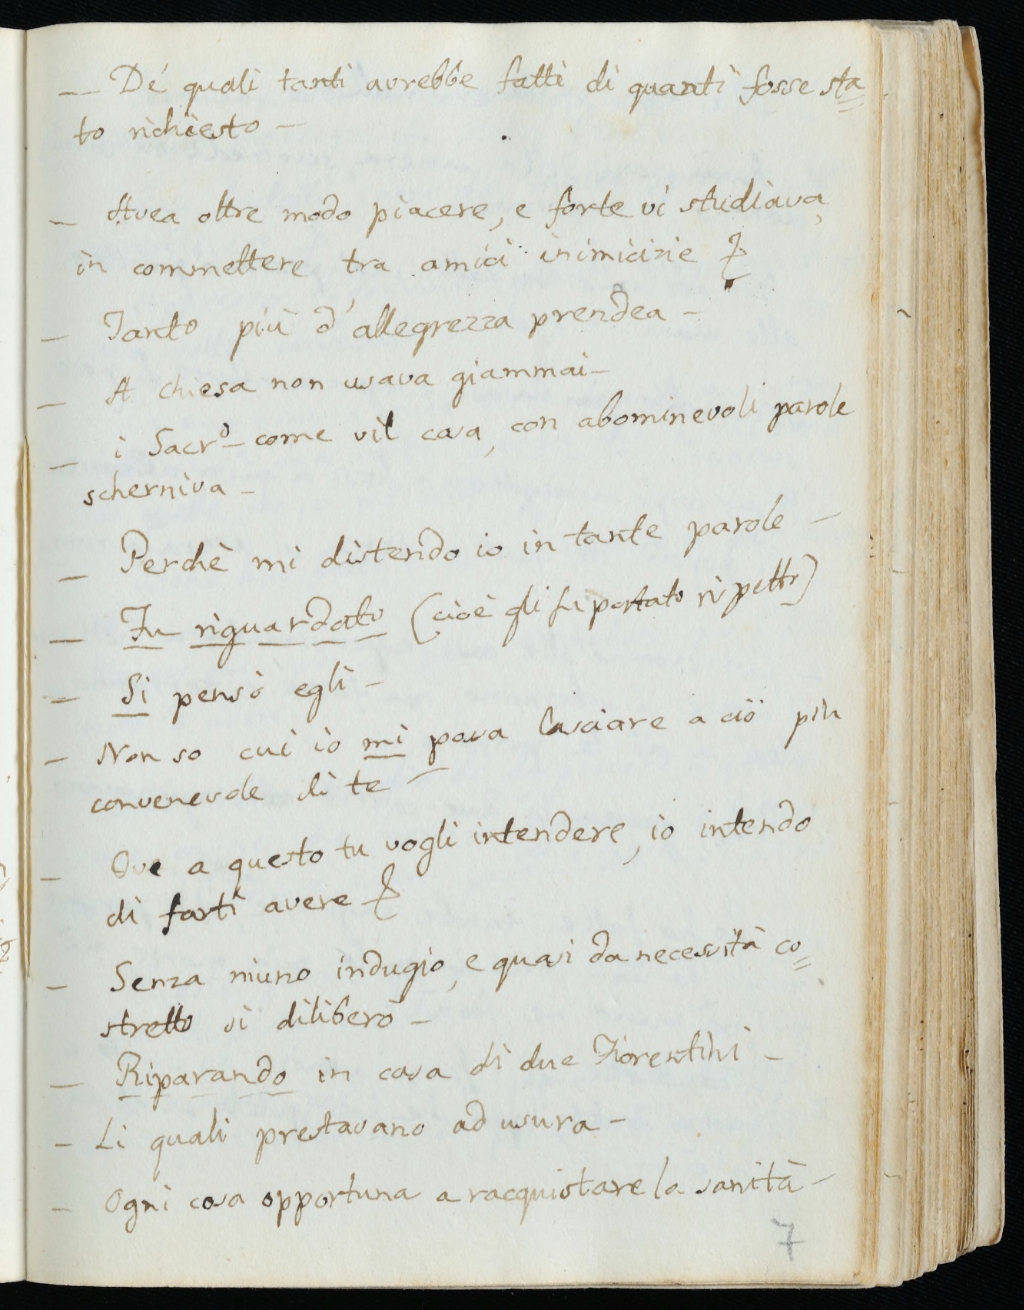 — De' quali tanti avrebbe fatti di quanti fosse sta=
to richiesto —
— Avea oltre modo piacere, e forte vi studiava,
in commettere tra amici inimicizie
— Tanto più d'allegrezza prendea —
— A chiesa non usava giammai —
— i Sacr.ⁱ — come vil cosa, con abominevoli parole
scherniva —
— Perchè mi distendo io in tante parole —
— Fu riguardato (cioè gli fu portato rispetto)
— Si pensò egli —
— Non so cui io mi possa lasciare a ciò più
convenevole di te —
— Ove a questo tu vogli intendere, io intendo
di farti avere
— Senza niuno indugio, e quasi da necessità co=
stretto si diliberò —
— Riparando in casa di due Fiorentini —
— Li quali prestavano ad usura —
— Ogni cosa opportuna a racquistare la sanità —
7